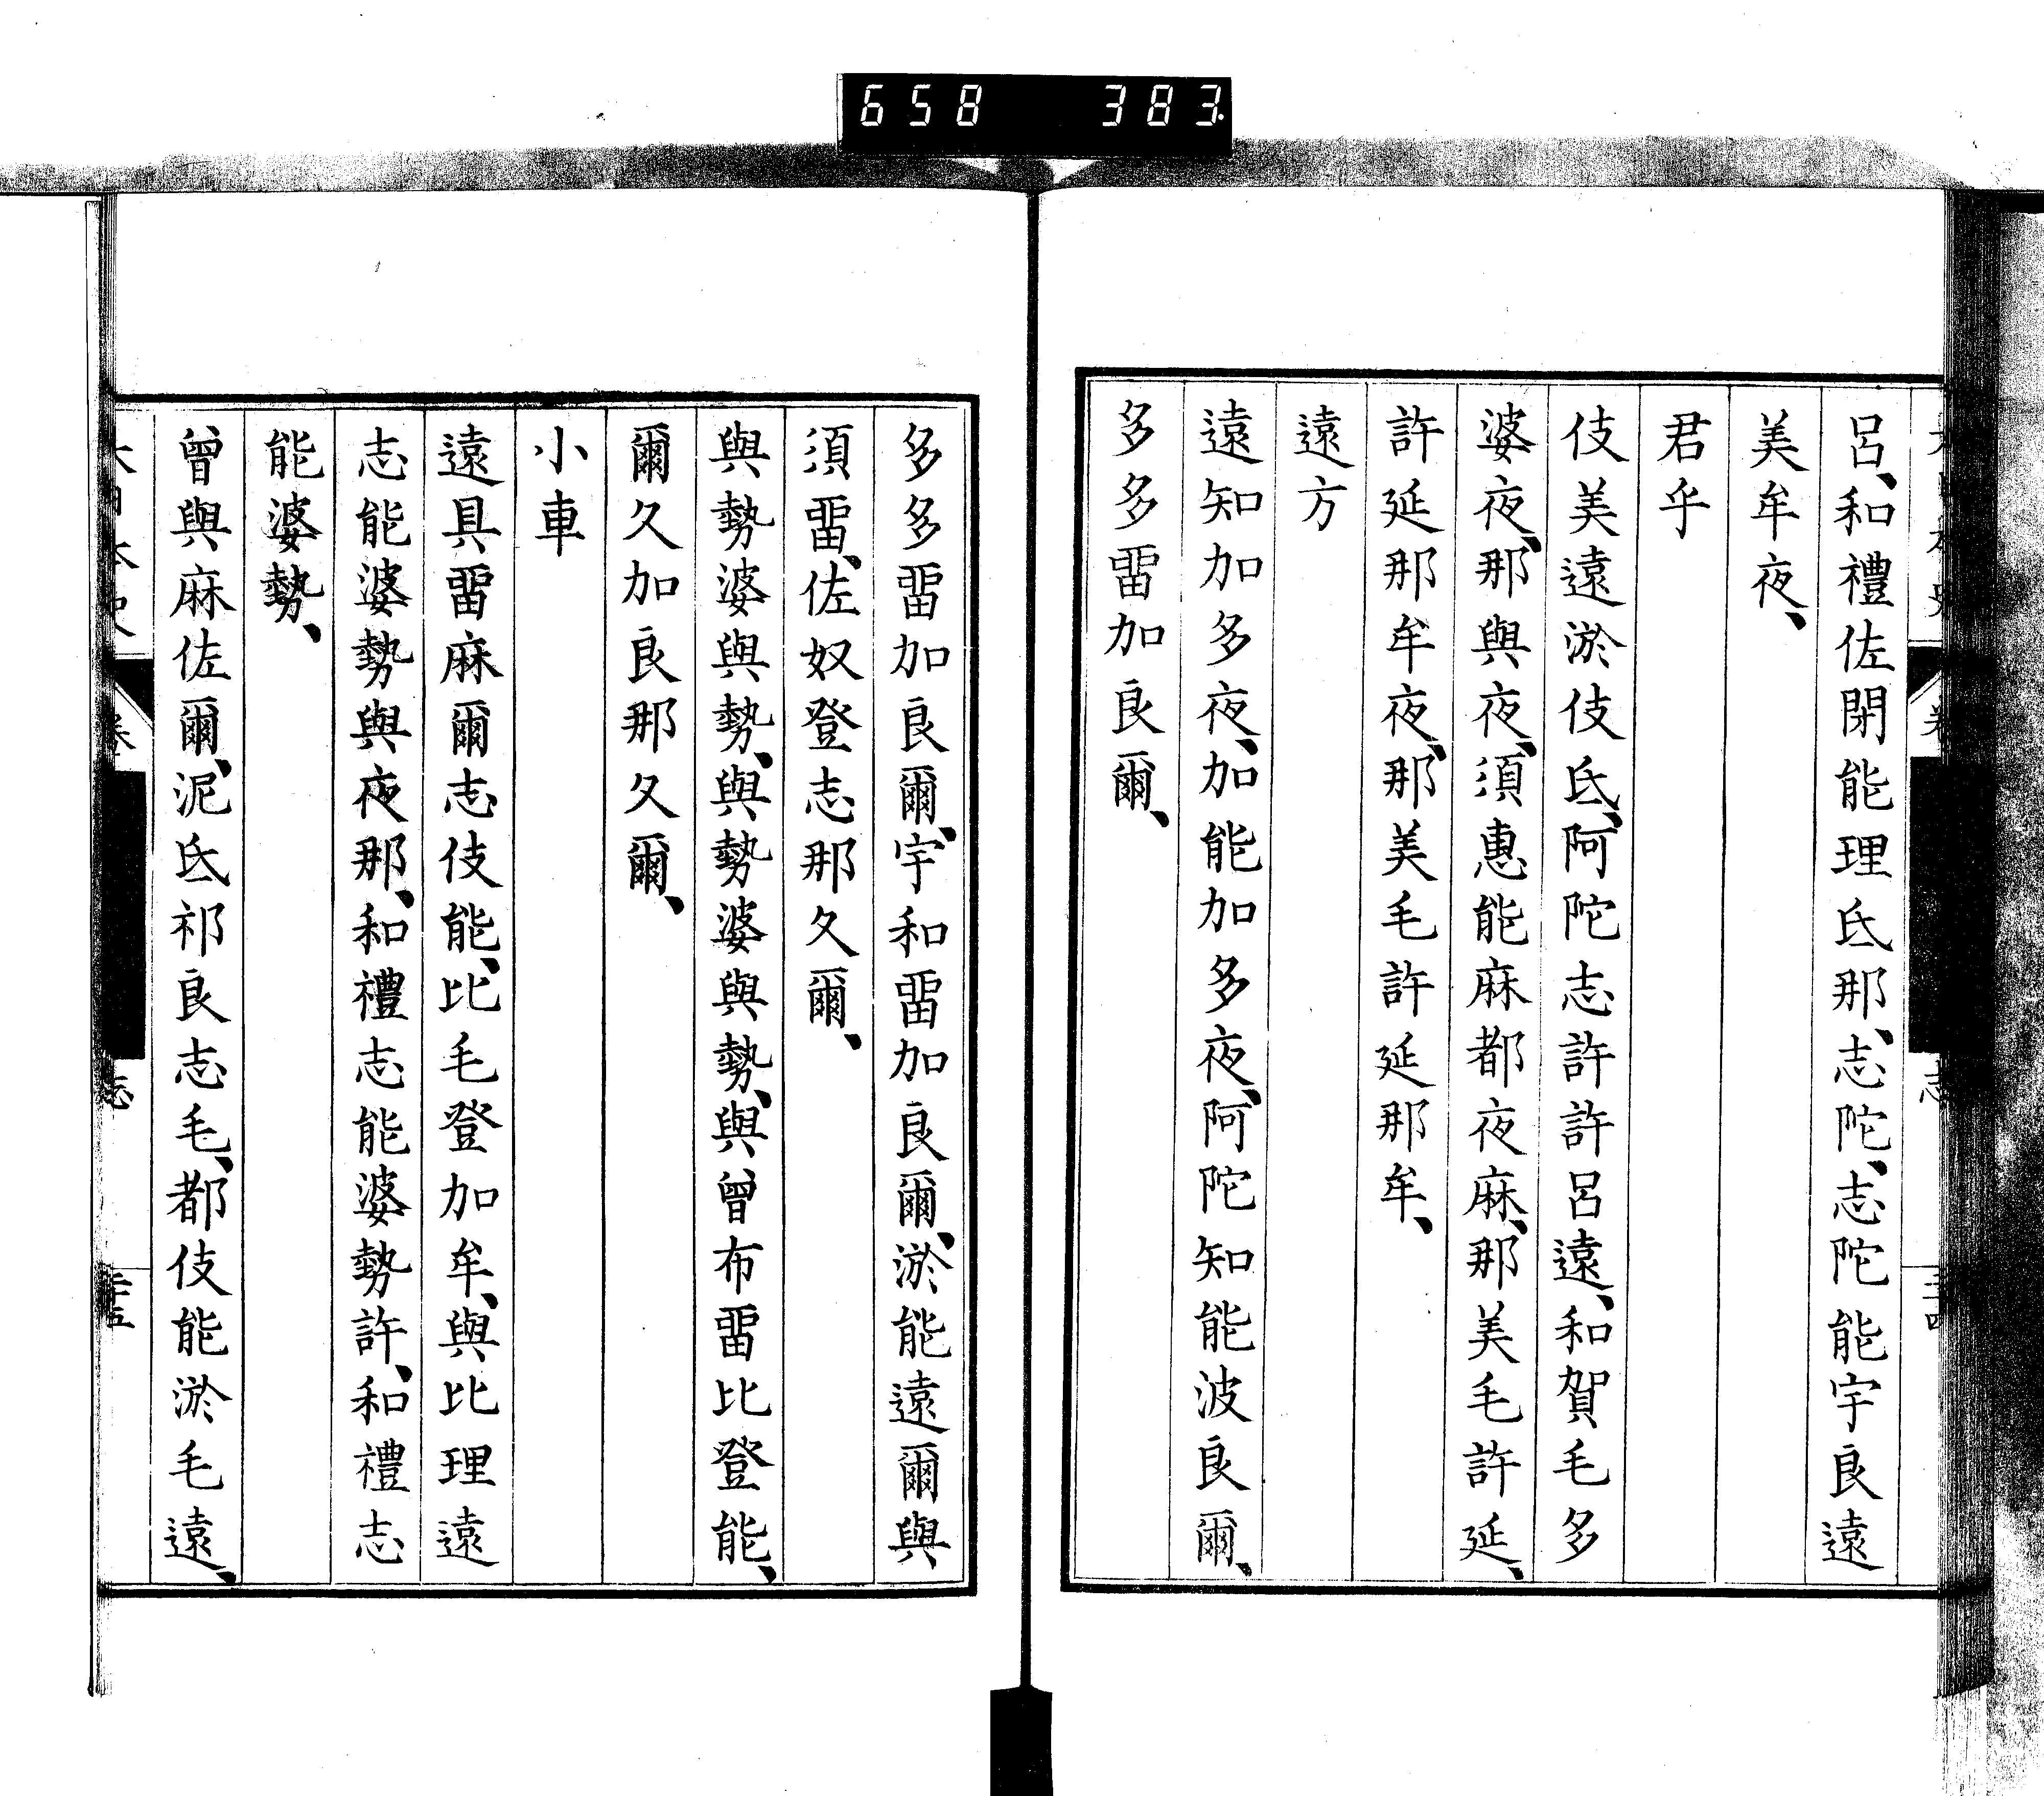 658 383
呂、和禮佐閉能理氐那、志陀、志陀能宇良遠
美牟夜、
君乎
伎美遠淤伎氐、阿陀志許許呂遠、和賀毛多
婆夜、那與夜、須惠能麻都夜麻、那美毛許延、
許延那牟夜、那美毛許延那牟、
遠方
遠知加多夜、加能加多夜、阿陀知能波良爾、
多多畱加良爾、
多多畱加良爾、宇和畱加良爾、淤能遠爾與
須畱、佐奴登志那久爾、
與勢婆與勢、與勢婆與勢、與曾布畱比登能、
爾久加良那久爾、
小車
遠具畱麻爾志伎能、比毛登加牟、與比理遠
志能婆勢與夜那、和禮志能婆勢許、和禮志
能婆勢、
曾與麻佐爾、泥氐祁良志毛、都伎能淤毛遠、
大日本史 卷 志 三十五